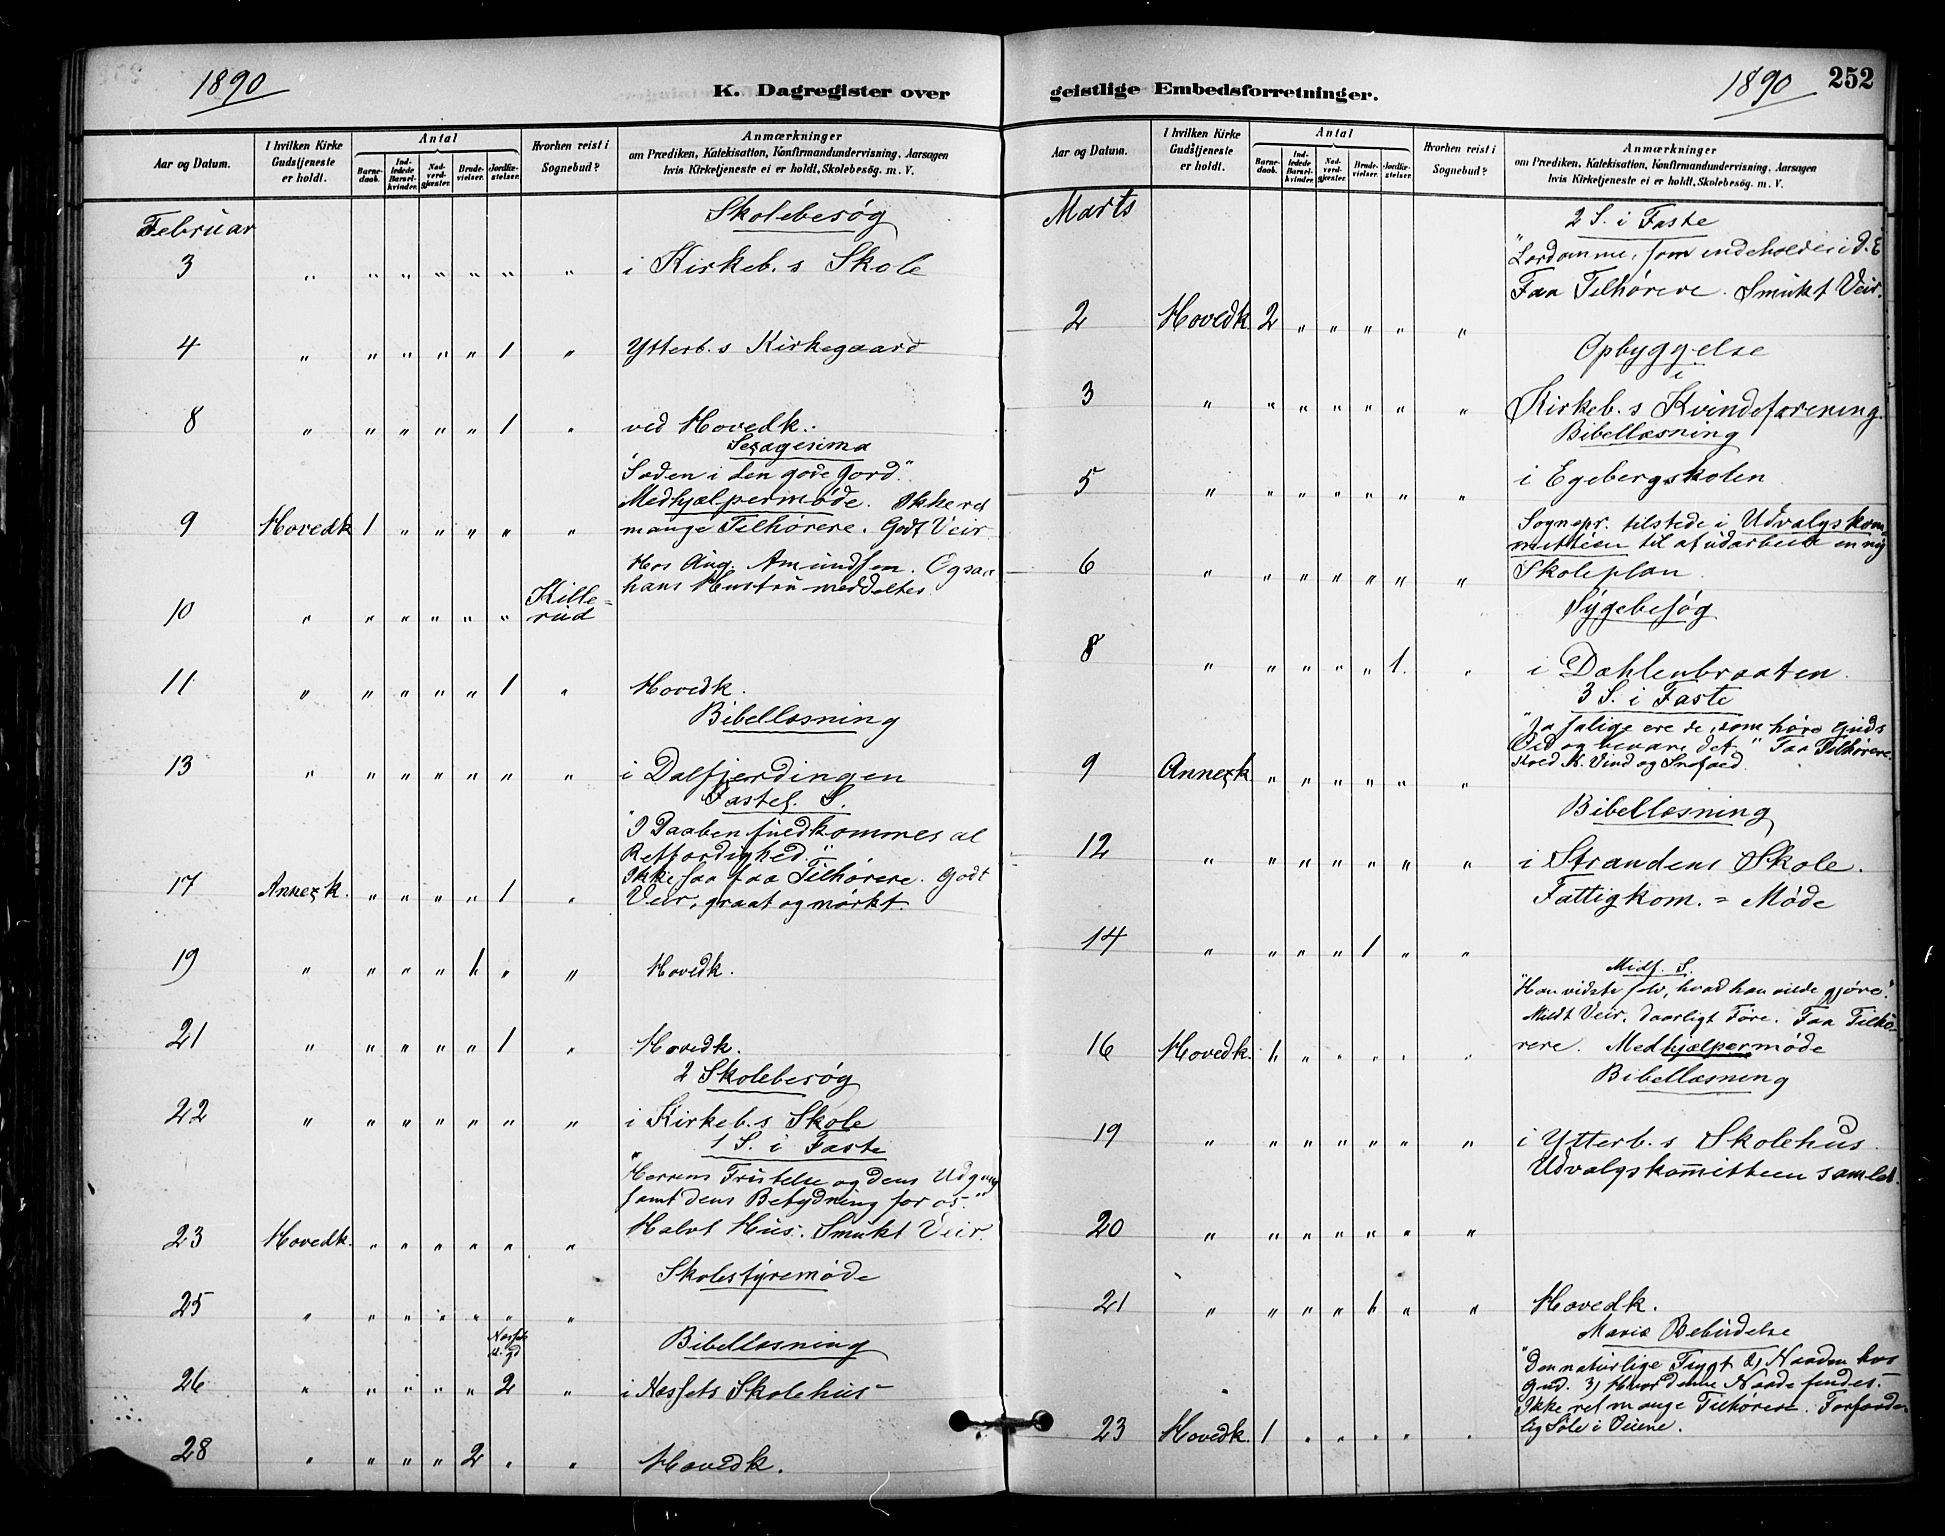 1890
K. Dagregister over
Aar og Datum.
I hvilken Kirke Gudstjeneste er holdt.
Antal
Barnedaab.
Indledede Barselkvinder.
Nadverdgjæster.
Brudevielser.
Jordfæstelser.
Hvorhen reist i Sognebud?
Anmærkninger
om Prædiken, Katekisation, Konfirmandundervisning, Aarsagen
hvis Kirketjeneste ei er holdt, Skolebesøg. m. V.
Februar
Skolebesøg
3 " " " " " " " i Kirkeb.s Skole
4 " " " " " 1 " Ytterb.s Kirkegaard
8 " " " " " 1 " ved Hovedk.
Sexagesima
"Sæden i den gode Jord."
Medhjælpermøde. Ikke ret
9 Hovedk 1 " " " " " mange Tilhørere. Godt Veir
Hos Aug. Amundsen. Ogsaa
hans Hustru meddeltes
10 " " " " " " Kille=
rud
11 " " " " " 1 " Hovedk.
Bibellæsning
13 " " " " " " " i Dalfjerdingen
Fastel. S.
"I Daaben fuldkommes al
Retfærdighed."
Ikke saa faa Tilhørere. Godt
17 Annexk. " " " " 1 " Veir, graat og mørkt.
19 " " " " 1. " " Hovedk.
21 " " " " " 1 " Hovedk.
2 Skolebesøg
22 " " " " " " " i Kirkeb.s Skole
1 S. i Faste
"Herrens Fristelse og dens Udgang
samt dens Betydning for os."
23 Hovedk. " " " " " " Halvt Hus. Smukt Veir.
Skolestyremøde
25 " " " " " " "
Bibellæsning
26 " " " " " 2 " i Næssets Skolehus
28 " " " " 2 " " Hovedk.
geistlige Embedsforretninger.
1890
252
Aar og Datum.
I hvilken Kirke Gudstjeneste er holdt.
Antal
Barnedaab.
Indledede Barselkvinder.
Nadverdgjæster.
Brudevielser.
Jordfæstelser.
Hvorhen reist i Sognebud?
Anmærkninger
om Prædiken, Katekisation, Konfirmandundervisning, Aarsagen
hvis Kirketjeneste ei er holdt, Skolebesøg. m. V.
Marts
2 S. i Faste
"Lærdomme, som indeholdes i d. E
Faa Tilhørere. Smukt Veir.
2 Hovedk. 2 " " " " "
Opbyggelse
i
3 " " " " " " " Kirkeb.s Kvindeforening
Bibellæsning
5 " " " " " " " i Egebergskolen
Sognepr. tilstede i Udvalgskom
mitteen til at udarbeide en ny
6 " " " " " " " Skoleplan
Sygebesøg
8 " " " " " 1. " i Dæhlenbraaten
3 S. i Faste
"Ja salige ere de, som høre Guds
Ord og bevare det." Faa Tilhørere.
9 Annexk " " " " " " Hvid K. Vind og Snefæd.
Bibellæsning
12 " " " " " " " i Strandens Skole.
Fattigkom. = Møde
14 " " " " 1 " "
Midf. S.
"Han vidste selv, hvad han vilde gjøre."
Mildt Veir. daarligt Føre. Faa Tilhø-
16 Hovedk. 1. " " " " " rere. Medhjælpermøde
Bibellæsning
19 " " " " " " " i Ytterb.s Skolehus
Udvalgskomitteen samlet.
20 " " " " " " "
21 " " " " 1. " " Hovedk.
Mariæ Bebudelse
"Den naturlige Frygt 2) Naaden hos
Gud. 3) Hvor denne Naade findes.
Ikke ret mange Tilhørere. Forfærde-
23 Hovedk. 1 " " " " " lig Føle i Veiene.